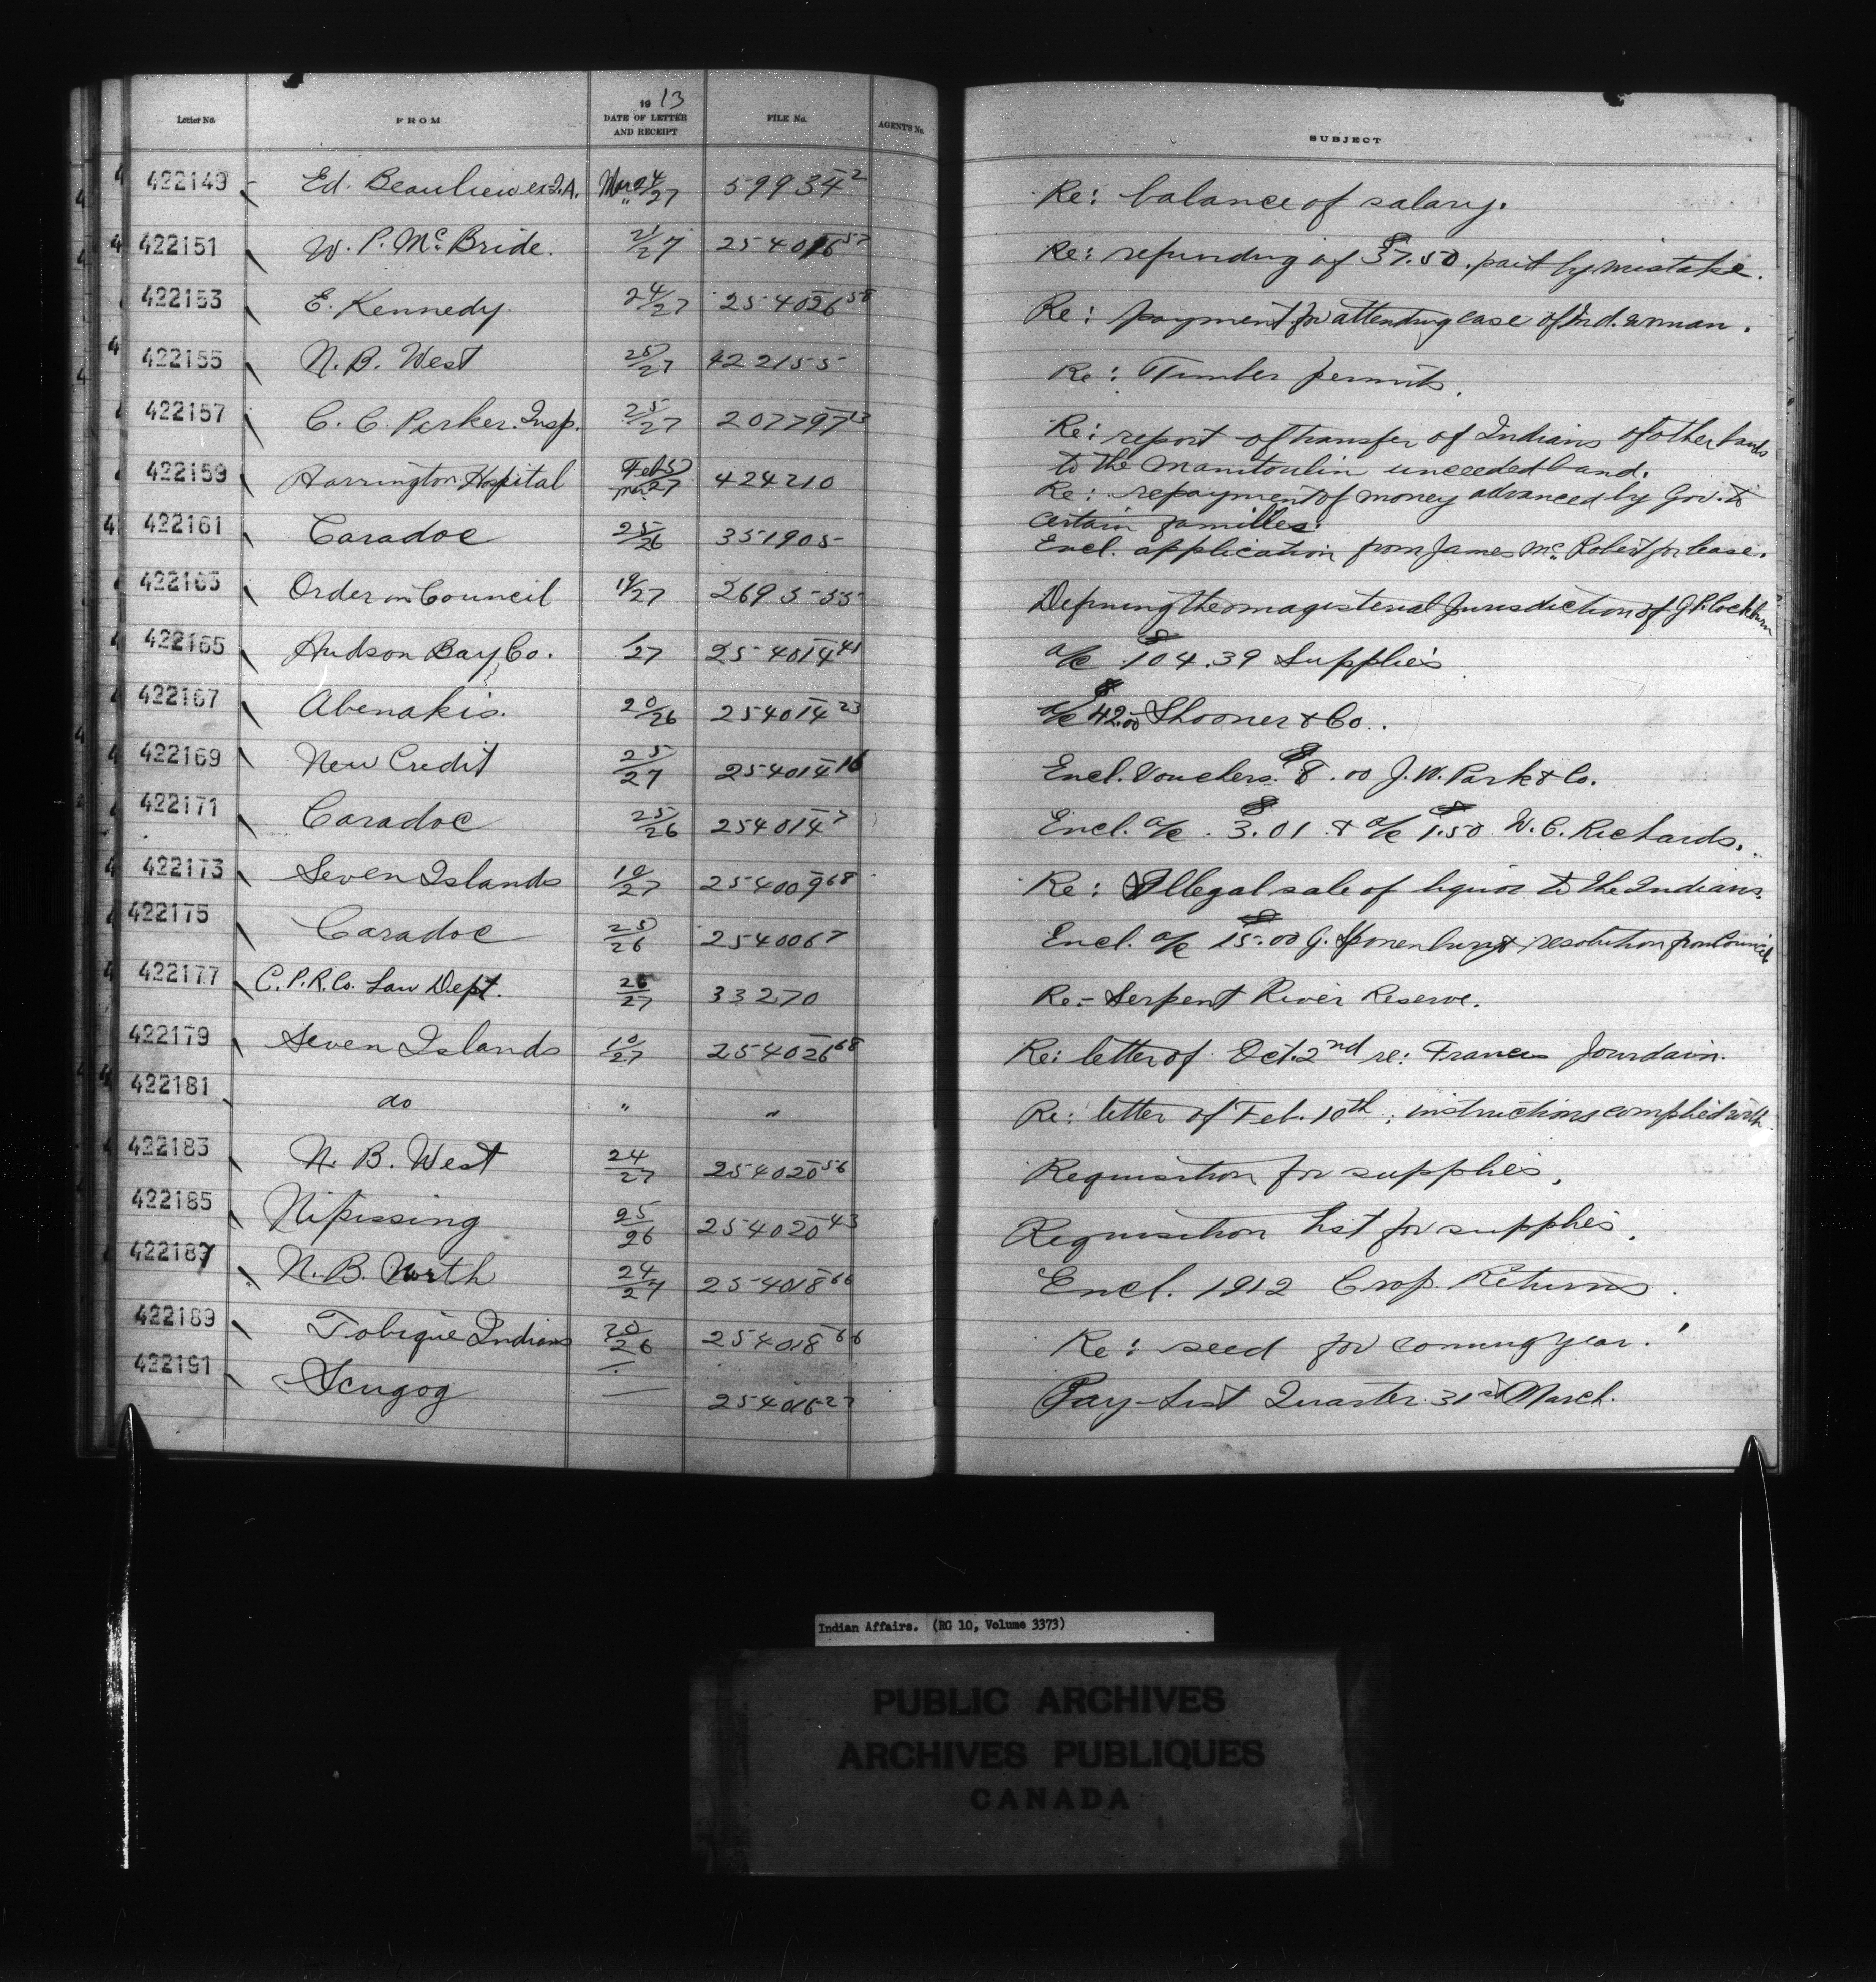 Letter No. FROM 1913 DATE OF LETTER AND RECEIPT FILE No. AGENT'S No. SUBJECT
422149 Ed. Beaulieu ex I.A. Mar 24/27 59934 2 Re: balance of salary.
422151 W. P. McBride. 21/27 254016 57 Re: refunding of $37.50. paid by mistake.
422153 E. Kennedy. 24/27 254026 58 Re: payment for attending case of Ind. woman.
422155 N. B. West 25/27 422155 Re: Timber permits.
422157 C. C. Parker. Insp. 25/27 207797 13 Re: report of transfer of Indians of other bands
to the Manitoulin unceeded band.
422159 Harrington Hospital Feb 5 Mar 27 424210 Re: repayment of money advanced by Gov. to
certain families.
422161 Caradoc 25/26 351905 Encl. application from James Mc Robert for lease.
422163 Order in Council 19/27 269555 Defining the magisterial jurisdiction of G.P. Cockburn
422165 Hudson Bay Co. /27 254014 41 a/c $104.39 Supplies
422167 Abenakis. 20/26 254014 23 a/c $42.00 Shooner & Co.
422169 New Credit 25/27 254014 16 Encl. Vouchers. $8.00 J. W. Park & Co.
422171 Caradoc 25/26 254014 7 Encl. a/c. $3.01 & a/c $1.50 W. C. Richards.
422173 Seven Islands 10/27 254009 68 Re: Illegal sale of liquor to the Indians.
422175 Caradoc 25/26 254006 7 Encl. a/c $15.00 G. Sponenburg & resolution from Council
422177 C.P.R. Co. Law Dept. 26/27 33270 Re:- Serpent River Reserve.
422179 Seven Islands 10/27 254026 68 Re: letter of Oct. 2nd re: Francis Jourdain.
422181 do " " Re: letter of Feb. 10th; instructions complied with.
422183 N. B. West 24/27 254020 56 Requisition for supplies.
422185 Nipissing 25/26 254020 43 Requisition list for supplies.
422187 N. B. North 24/27 254018 66 Encl. 1912 Crop Returns.
422189 Tobique Indians 20/26 254018 66 Re: seed for coming year.
422191 Scugog — 254016 27 Pay-List Quarter 31st March.
Indian Affairs. (RG 10, Volume 3373)
PUBLIC ARCHIVES
ARCHIVES PUBLIQUES
CANADA